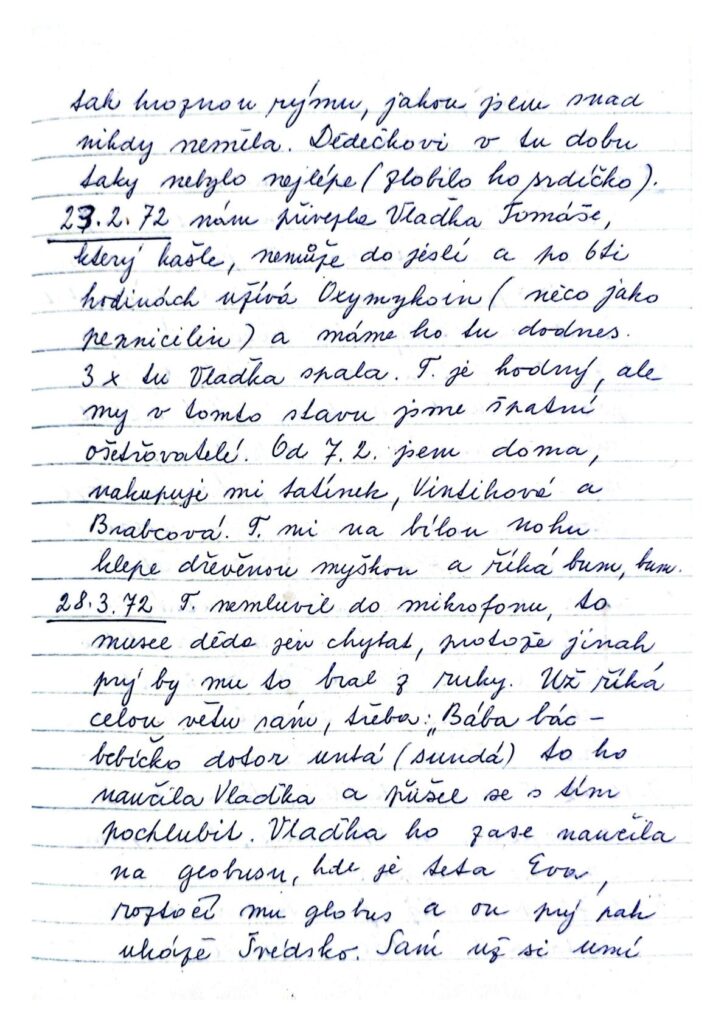 tak hroznou rýmu, jakou jsem snad
nikdy neměla. Dědečkovi v tu dobu
taky nebylo nejlépe (zlobilo ho srdíčko).
23.2.72 nám přivezla Vlaďka Tomáše,
který kašle, nemůže do jeslí a po 6ti
hodinách užívá Oxymykoin (něco jako
pennicilin) a máme ho tu dodnes.
3x tu Vlaďka spala. T. je hodný, ale
my v tomto stavu jsme špatní
ošetřovatelé. Od 7.2. jsem doma,
nakupuje mi tatínek, Vintihová a
Brabcová. T. mi na bílou nohu
klepe dřevěnou myškou a říká bum, bum.
28.3.72 T. nemluvil do mikrofonu, to
musel děda jen chytat, protože jinak
prý by mu to bral z ruky. Už říká
celou větu sám, třeba: „Bába bác –
bebíčko dotor untá (sundá) to ho
naučila Vlaďka a přišel se s tím
pochlubit. Vlaďka ho zase naučila
na geobusu, kde je teta Eva,
roztočí mu globus a on prý pak
ukáže Švédsko. Sám už si umí